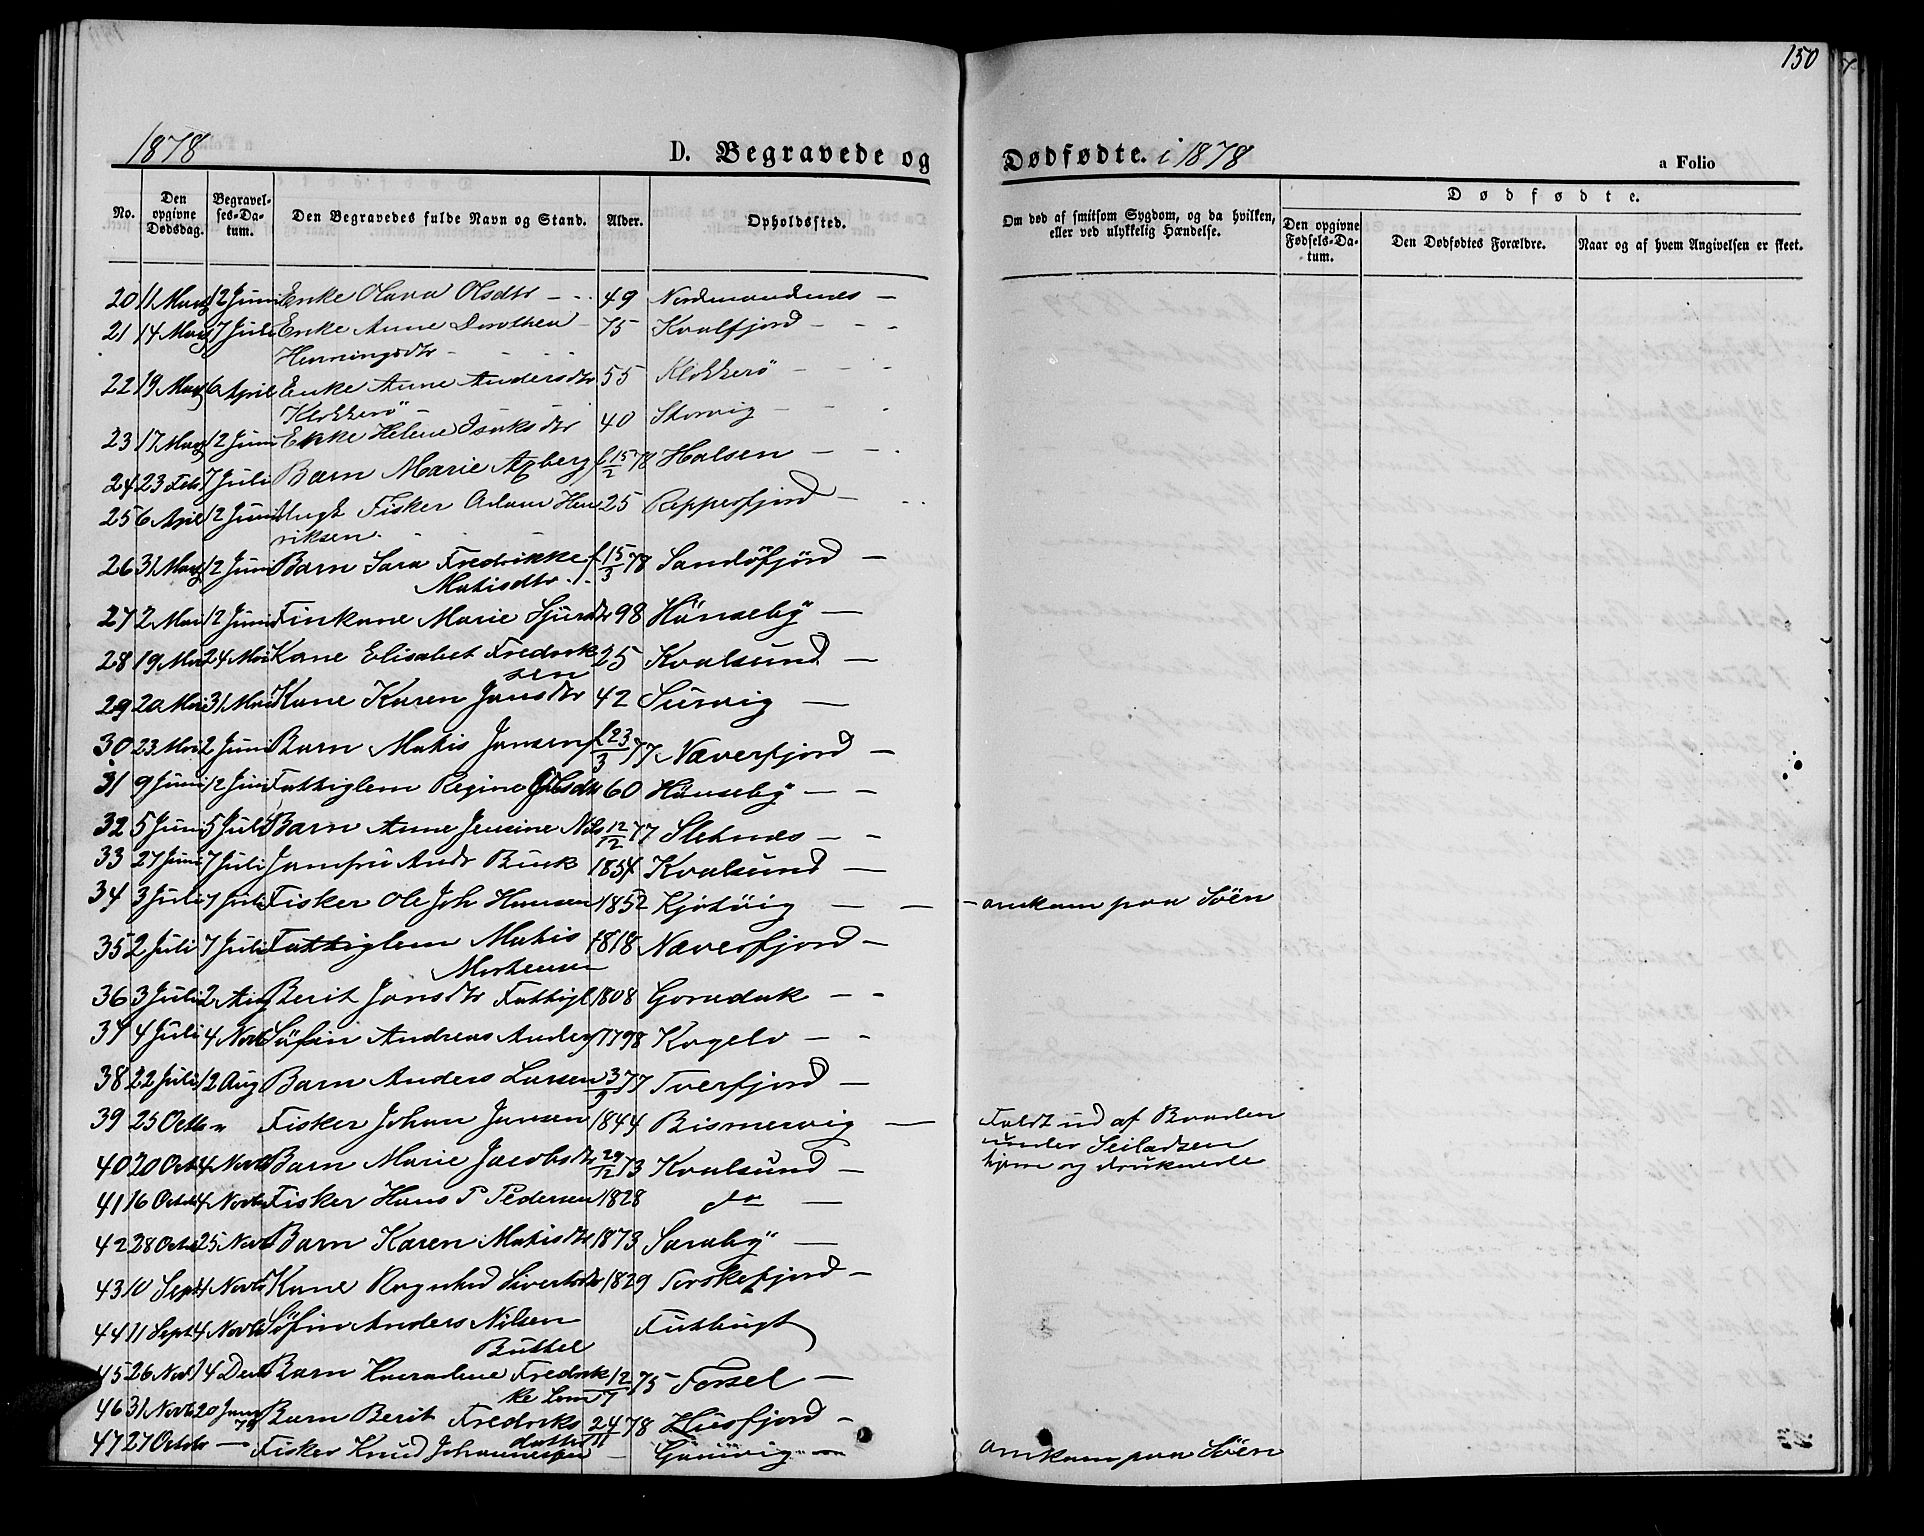 150
1878
D. Begravede og
Dødfødte. i 1878
a Folio
No.
Den opgivne Dødsdag.
Begravelses-Datum.
Den Begravedes fulde Navn og Stand.
Alder.
Opholdssted.
Om død af smitsom Sygdom, og da hvilken, eller ved ulykkelig Hændelse.
Dødfødte.
Den opgivne Fødsels-Datum.
Den Dødfødtes Forældre.
Naar og af hvem Angivelsen er skeet.
20 11 Marts 12 Juni Enke Olava Olsdtr 49 Nordmandnes
21 14 Marts 7 Juli Enke Anne Dorothea 75 Kvalfjord
Henningsdtr
22 19 Marts 6 April Enke Anne Andersdtr 55 Klokkerö
Klokkerö
23 17 Marts 12 Juni Enke Helene Isaksdtr 40 Storvig
24 23 Feb 7 Juli Barn Marie Axberg f 15/2 78 Halsen
25 6 April 12 Juni Ungk Fisker Adam Hen 25 Repperfjord
riksen.
26 31 Marts 12 Juni Barn Sara Fredrikke f 15/3 78 Sandöfjord
Matisdtr.
27 2 Mai 12 Juni Finkone Marie Sjursdtr 98 Hönseby
28 19 Mai 24 Mai Kone Elisabet Fredrik 25 Kvalsund
sen
29 20 Mai 31 Mai Kone Karen Jansdtr 42 Survig
30 23 Mai 2 Juni Barn Matis Jansen f 23/3 77 Næverfjord
31 9 Juni 12 Juni Fattiglem Regine 60 Hönseby
32 5 Juni 5 Juli Barn Anne Jensine Nils 12/12 77 Sletnes
33 27 Juni 7 Juli Jomfru Andr Buck 1854 Kvalsund
34 3 Juli 7 Juli Fisker Ole Joh Hansen 1852 Kjötvig omkom paa Söen
35 2 Juli 7 Juli Fattiglem Matis 1818 Næverfjord
Mortensen
36 3 Juli 2 Aug Berit Jonsdtr Fattigl 1808
37 4 Juli 4 Novb Söfin Andreas Anders 1798 Kogelv
38 22 Juli 12 Aug Barn Anders Larsen 77 Tverfjord
39 25 Octb " Fisker Johan Jansen 1844 Bismervig Faldt ud af Baaden
under Seiladsen
hjem og druknede
40 20 Oct 4 Novb Barn Marie Jacobsdtr 29/12 73 Kvalsund
41 16 Octob 4 Novb Fisker Hans P Pedersen 1828 do
42 28 Octb 25 Novb Barn Karen Matisdtr 1873 Saraby
43 10 Sept 4 Novb Kone Ragnhild Sivertsdtr 1829 Torskefjord
44 11 Sept 4 Novb Söfin Anders Nilsen
Buttel
45 26 Novb 14 Decb Barn Fredrik 12/7 75 Forsøl
ke
46 31 Novb 20 Janr 79 Barn Berit Fredriks 24/11 78 Husfjord
datter
47 27 Octobr — Fisker Knud Johannesen omkom paa Söen